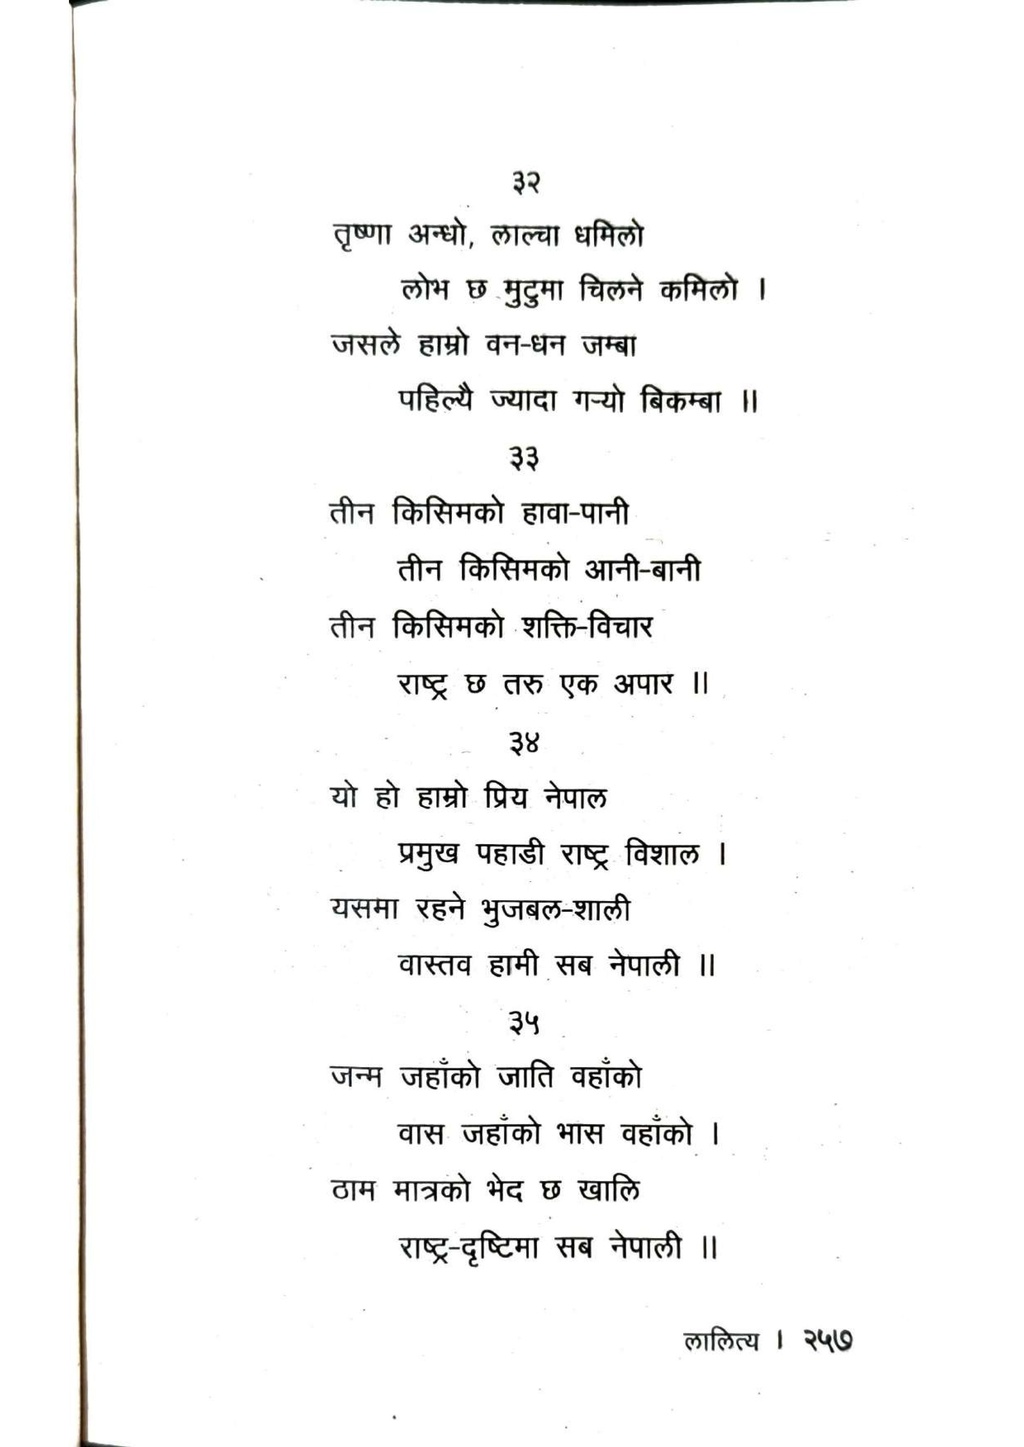 ३२
तृष्णा अन्धो, लाल्चा धमिलो
लोभ छ मुटुमा चिलने कमिलो ।
जसले हाम्रो वन-धन जम्बा
पहिल्यै ज्यादा गर्‍यो बिकम्बा ॥
३३
तीन किसिमको हावा-पानी
तीन किसिमको आनी-बानी
तीन किसिमको शक्ति-विचार
राष्ट्र छ तरु एक अपार ॥
३४
यो हो हाम्रो प्रिय नेपाल
प्रमुख पहाडी राष्ट्र विशाल ।
यसमा रहने भुजबल-शाली
वास्तव हामी सब नेपाली ॥
३५
जन्म जहाँको जाति वहाँको
वास जहाँको भास वहाँको ।
ठाम मात्रको भेद छ खालि
राष्ट्र-दृष्टिमा सब नेपाली ॥
लालित्य । २५७